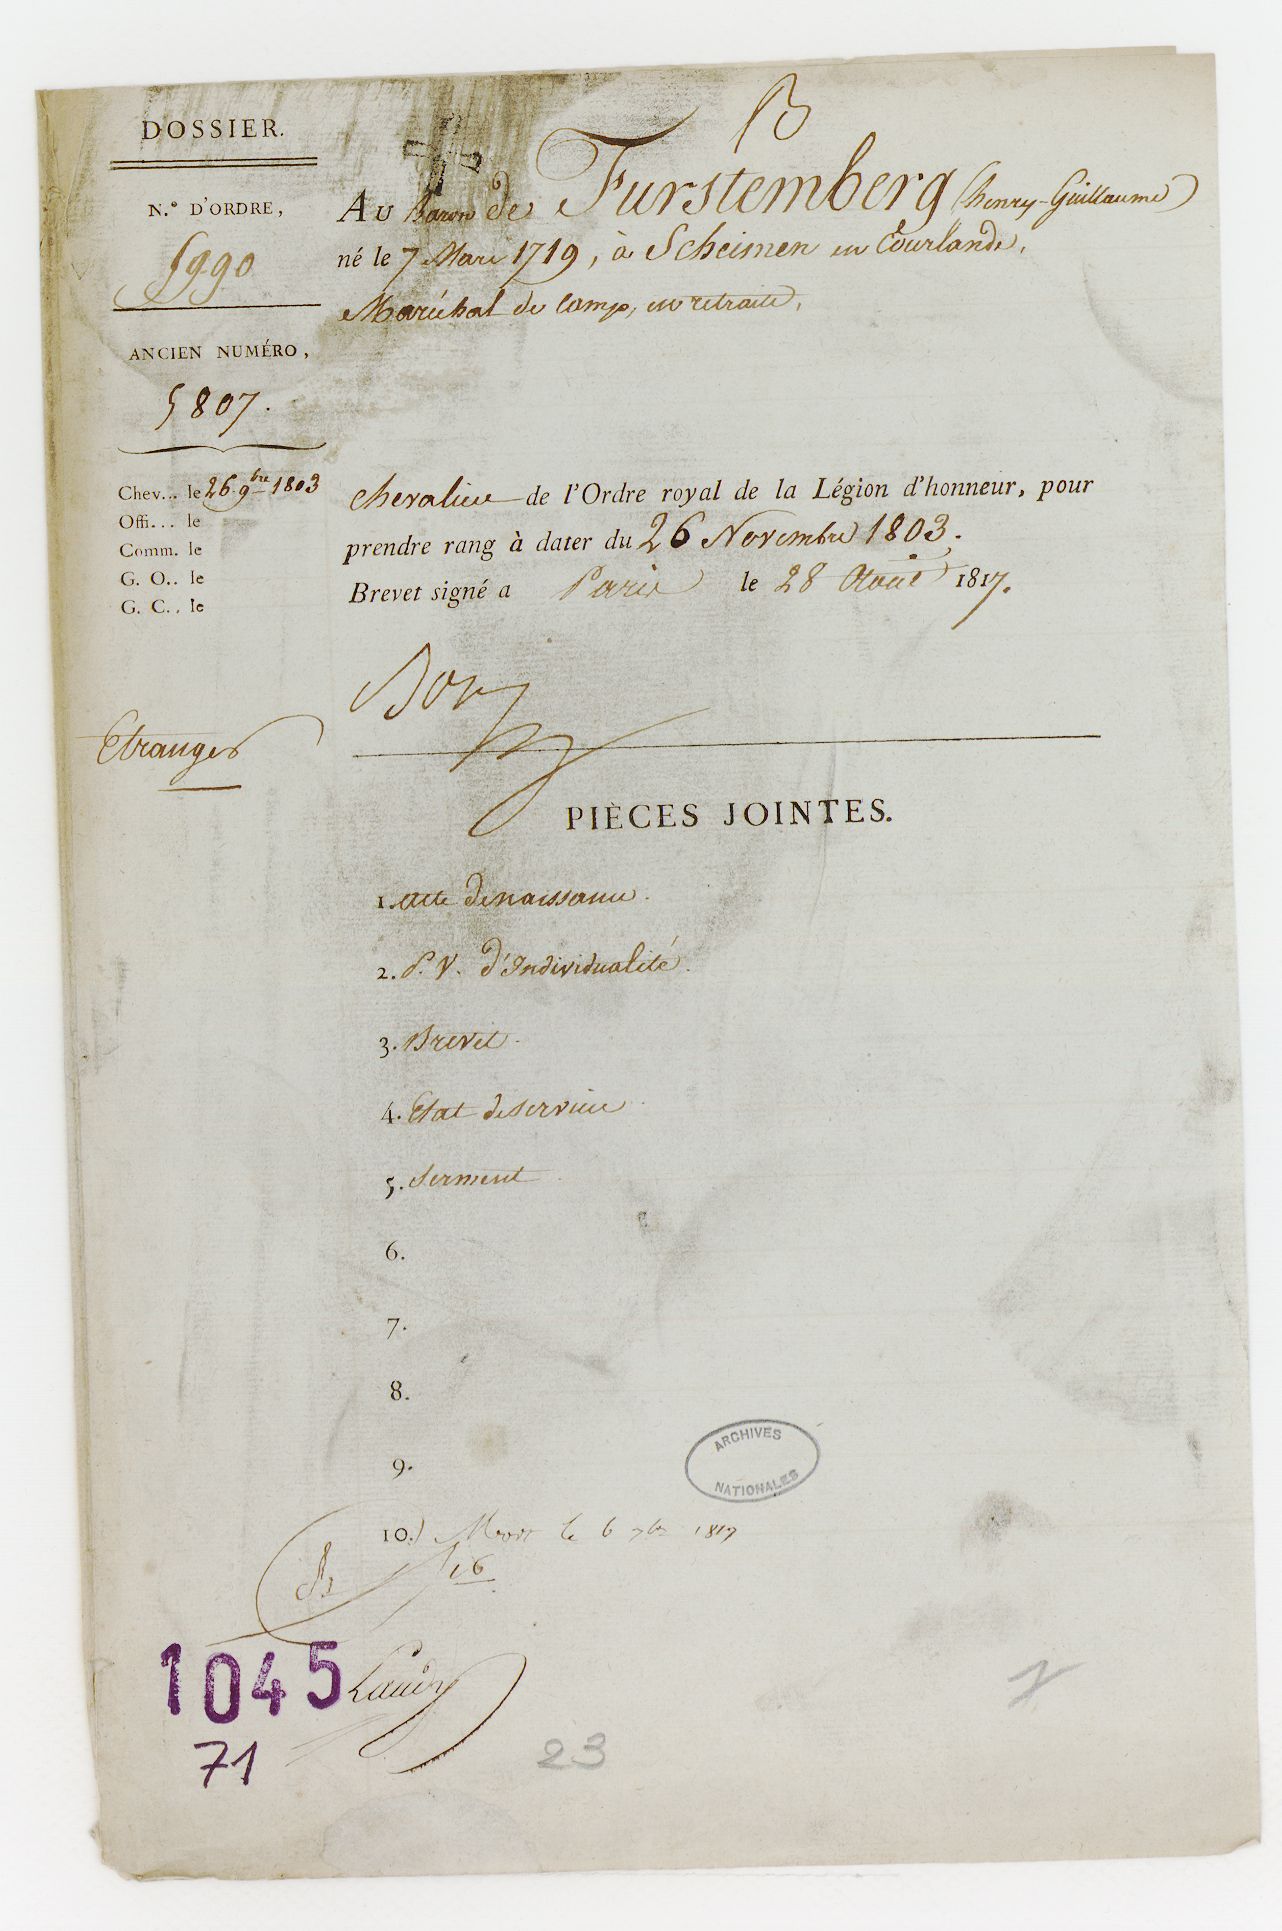 B
DOSSIER.
N.º D'ORDRE,
5990
ANCIEN NUMÉRO,
5807.
Chev... le 26 9bre 1803
Offi... le
Comm. le
G. O.. le
G. C.. le
Etranger
AU Baron de Furstemberg (henry-Guillaume)
né le 7 Mars 1719, à Scheimen en Courlande,
Maréchal de Camp, en retraite,
chevalier de l'Ordre royal de la Légion d'honneur, pour
prendre rang à dater du 26 Novembre 1803.
Brevet signé a Paris le 28 Aout 1817.
PIÈCES JOINTES.
1. acte de naissance.
2. P. V. d'Individualité.
3. Brevet.
4. Etat de service
5. Serment
6.
7.
8.
9.
ARCHIVES
NATIONALES
10.) Mort le 6 7bre 1817
1045
71
23